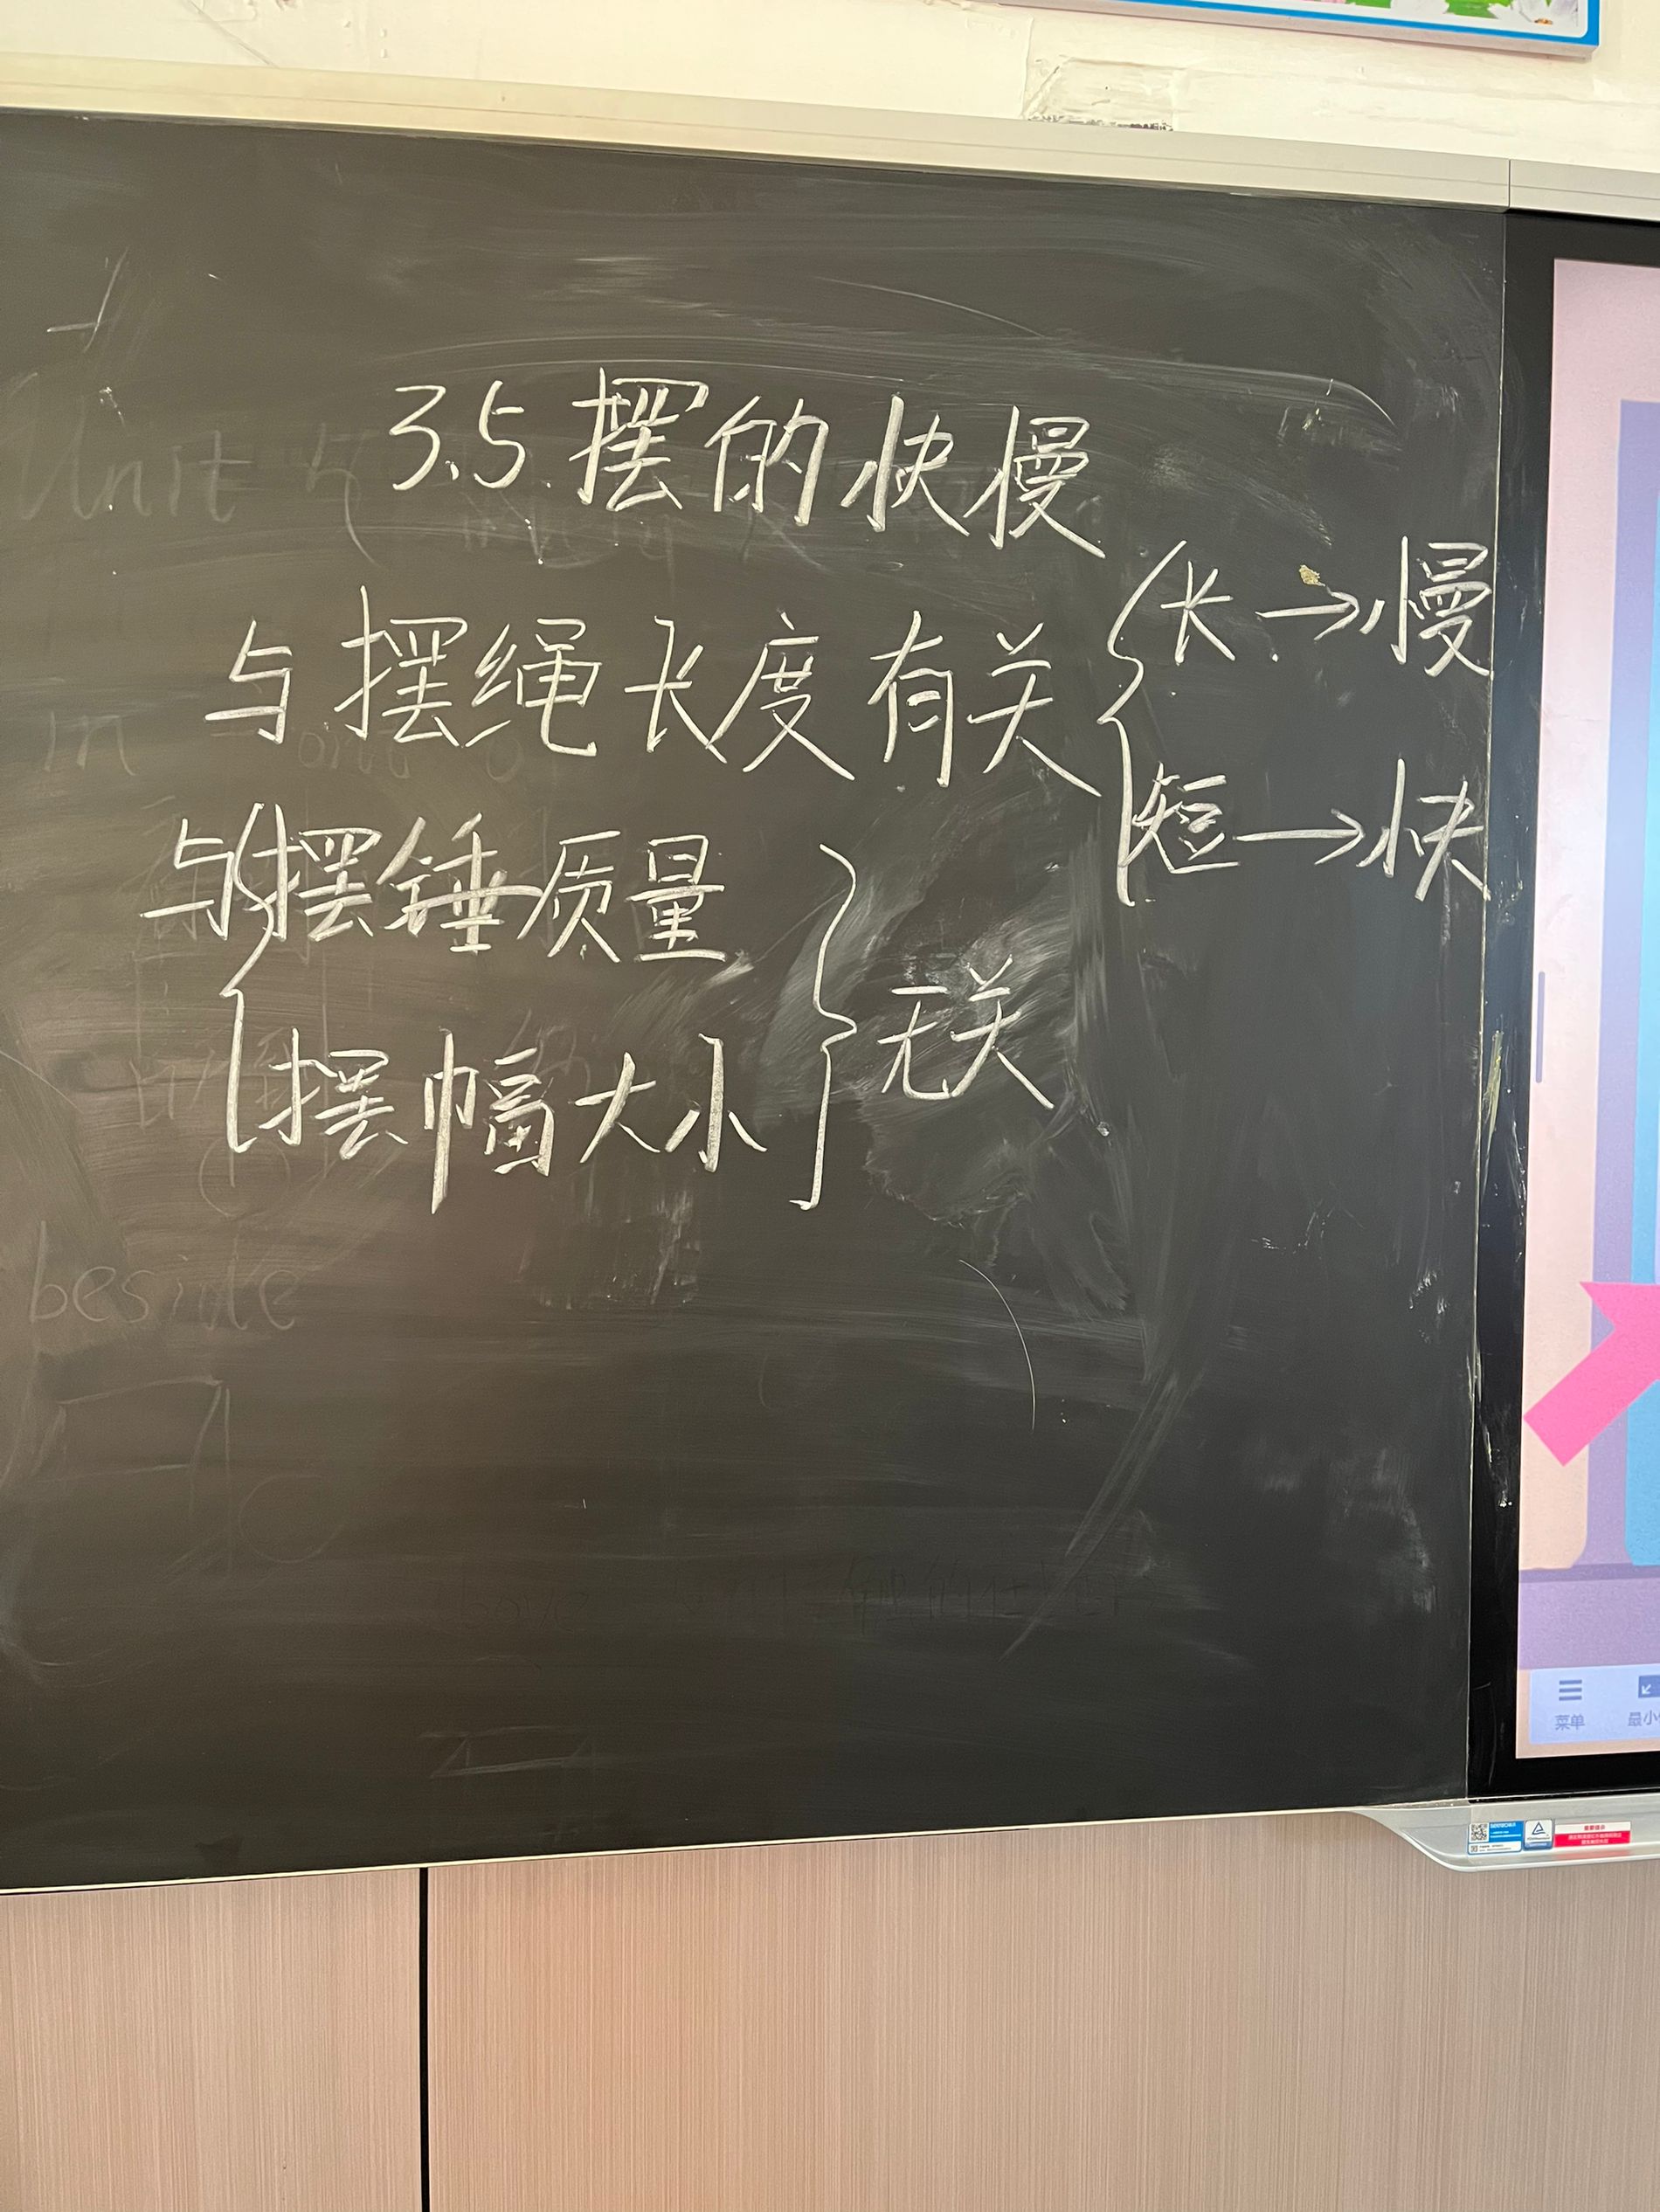 3.5 摆的快慢
与摆绳长度有关 { 长→慢
短→快
与 { 摆锤质量
摆幅大小 } 无关
Unit
in
beside
菜单
最小